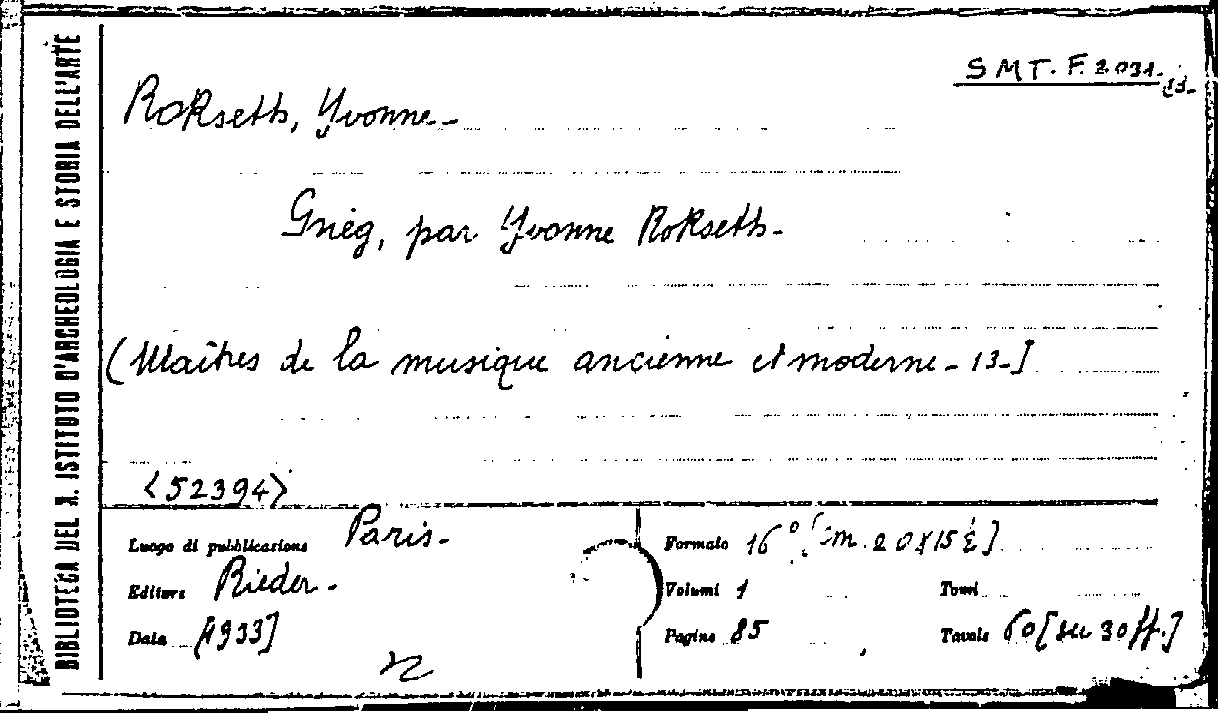 SMT. F. 2031.
Rokseth, Yvonne -
Grieg, par Yvonne Rokseth -
(Maîtres de la musique ancienne et moderne - 13 -]
<52394>
BIBLIOTECA DEL R. ISTITUTO D'ARCHEOLOGIA E STORIA DELL'ARTE
Luogo di pubblicazione Paris -
Editore Rieder -
Data [1933]
Formato 16° [cm. 20x15
Volumi 1 Tomi
Pagine 85 Tavole 60 [su 30 ff.]